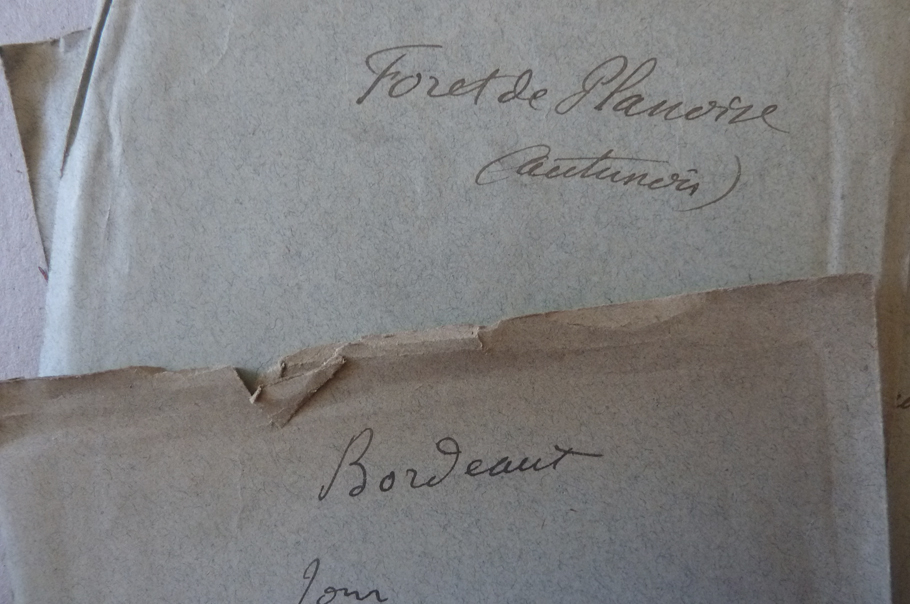 Foret de Planoise
(autunois)
Bordeaut
Jour